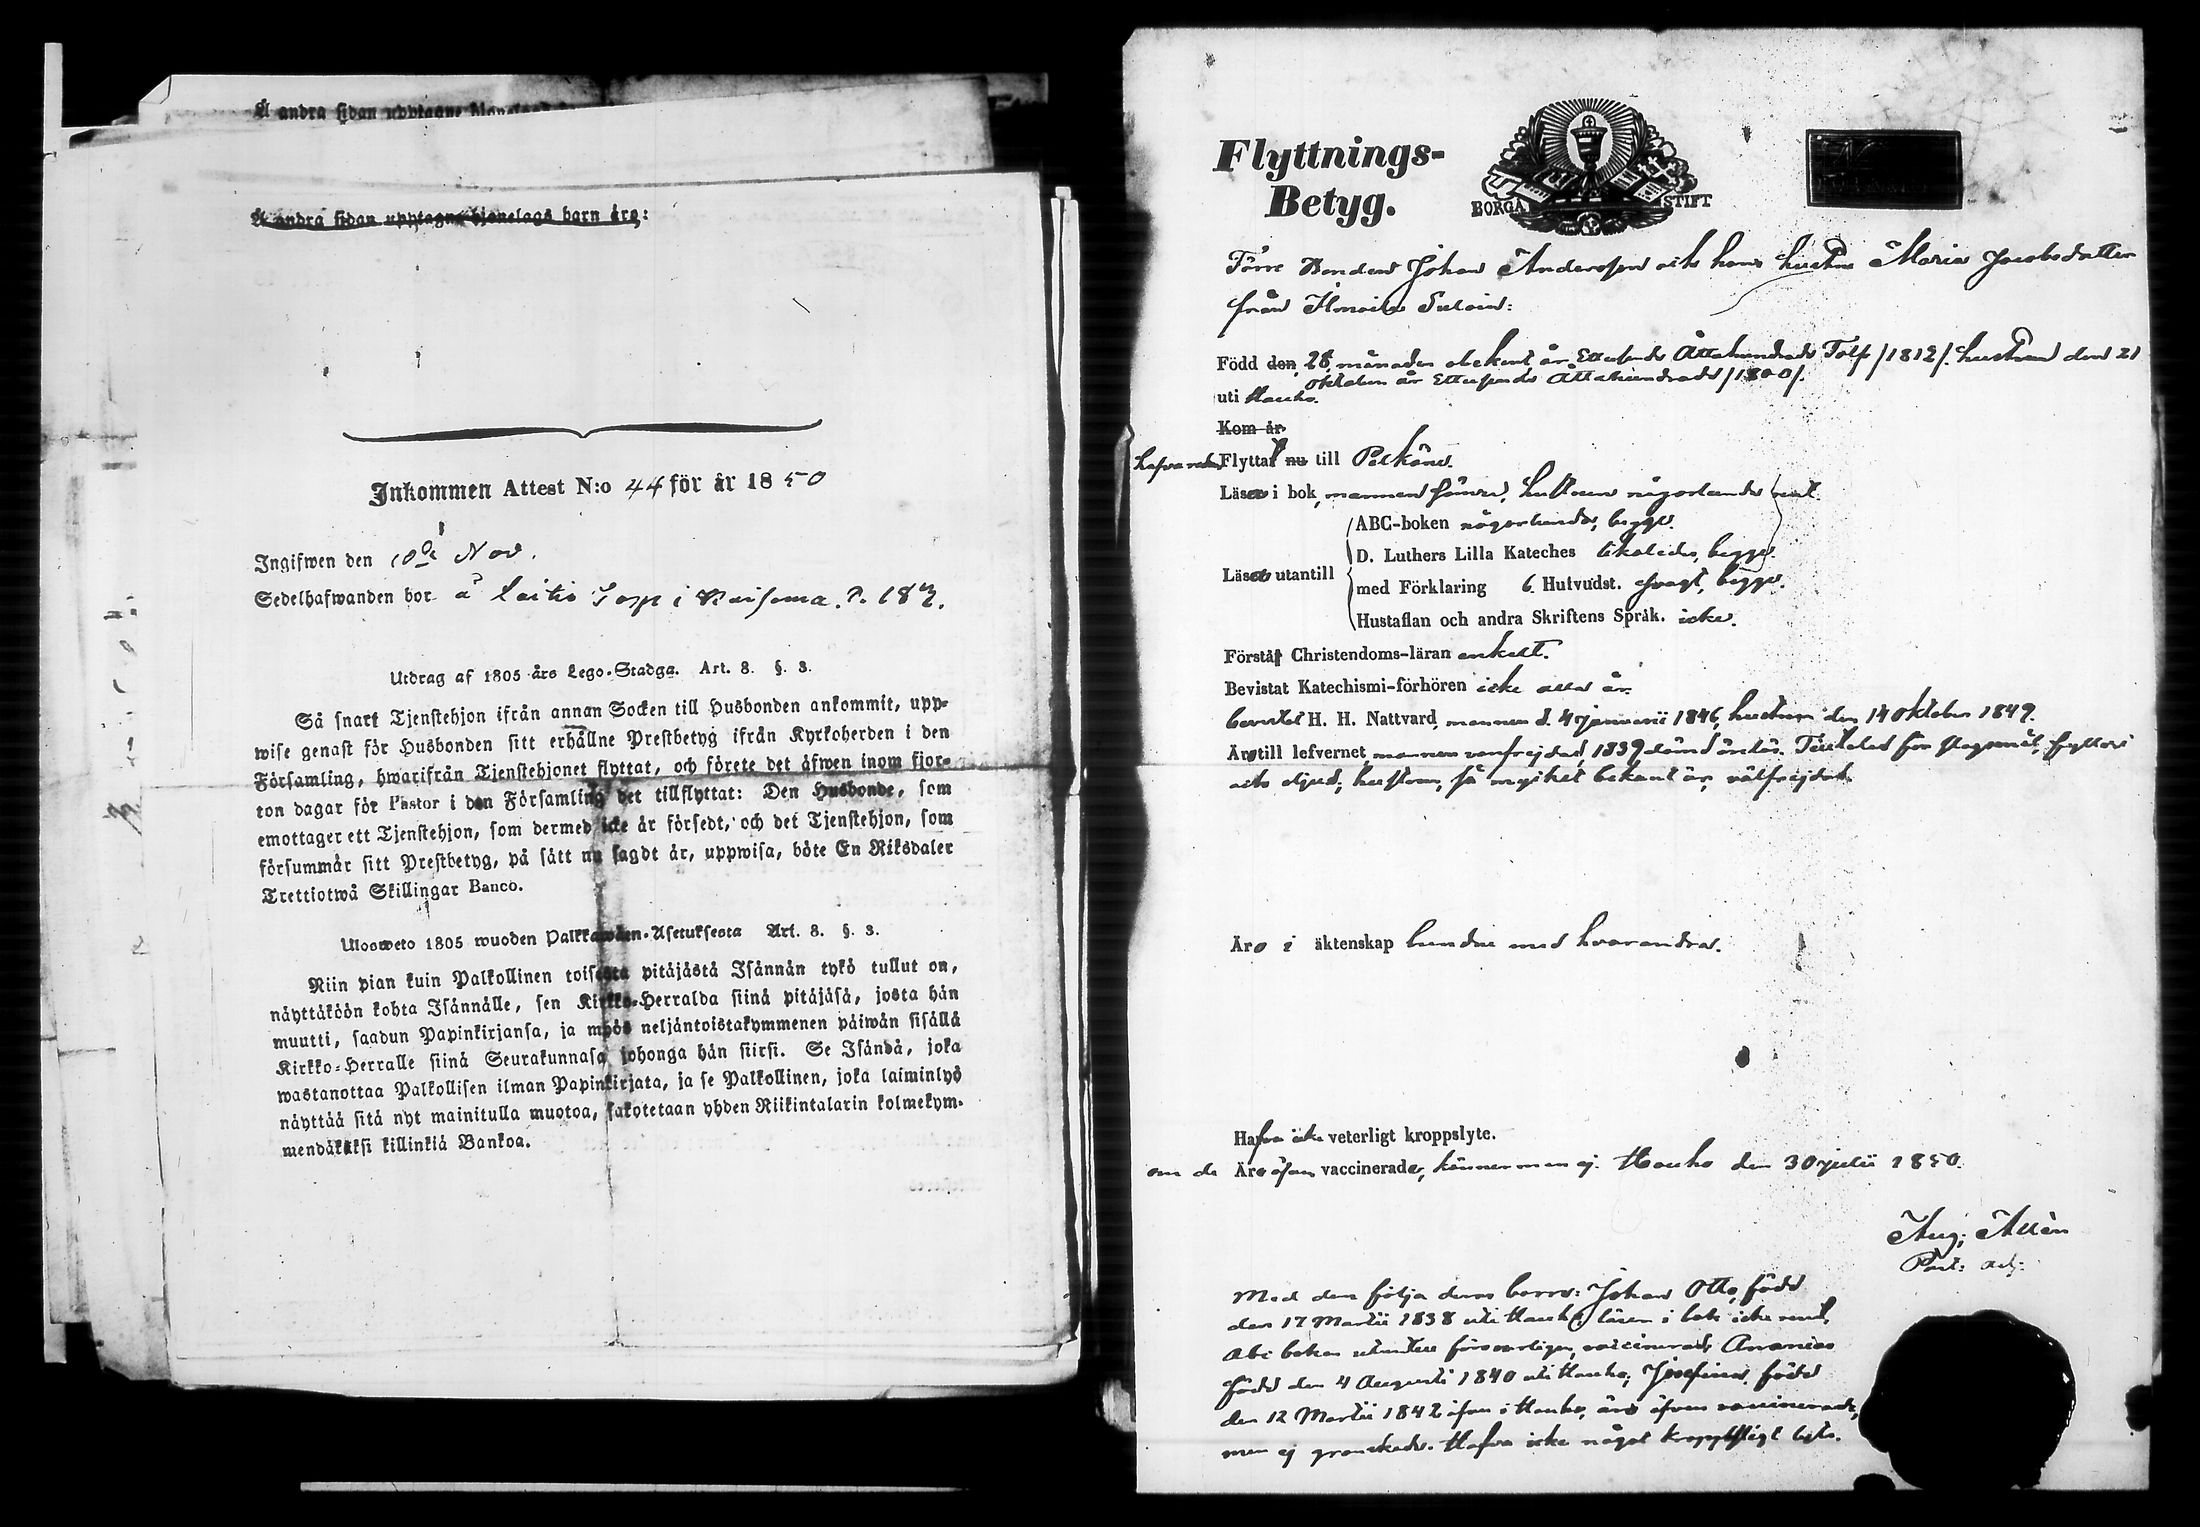 Å andra sidan upptagne bjonelags barn äro:
Inkommen Attest N:o 44 för år 1850
Ingifwen den 10de Nov.
Sedelhafwanden bor å Laitis i P. 187.
Utdrag af 1805 års Lego-Stadga. Art. 8. §. 3.
Så snart Tjenstehjon ifrån annan Socken till Husbonden ankommit, upp-
wise genast för Husbonden sitt erhållne Prestbetyg ifrån Kyrkoherden i den
Församling, hwarifrån Tjenstehjonet flyttat, och förete det äfwen inom fjor-
ton dagar för Pastor i den Församling det tillflyttat: Den Husbonde, som
emottager ett Tjenstehjon, som dermed icke är försedt, och det Tjenstehjon, som
försummar sitt Prestbetyg, på sätt nu sagdt är, uppwisa, böte En Riksdaler
Trettiotwå Skillingar Banco.
Ulosweto 1805 wuoden Palkkawäen-Asetuksesta Art. 8. §. 3.
Niin pian kuin Palkollinen toisesta pitäjästä Isännän tykö tullut on,
näyttäköön kohta Isännälle, sen Kirkko-Herralda siinä pitäjäsä, josta hän
muutti, saadun Papinkirjansa, ja myös neljäntoistakymmenen päiwän sisällä
Kirkko-Herralle siinä Seurakunnasa johonga hän siirsi. Se Isändä, joka
wastanottaa Palkollisen ilman Papinkirjata, ja se Palkollinen, joka laiminlyö
näyttää sitä nyt mainitulla muotoa, sakotetaan yhden Riikintalarin kolmekym-
mendäkaksi killinkiä Bankoa.
Flyttnings-
Betyg.
BORGÅ STIFT
Förre Bonden Johan Andersson och hans hustru Maria Jacobsdotter
från
Född den 28 månaden obekant år Ettusende Åttahundrade Tolf /1812/. hustrun den 21
oktober år Ettusende Åttahundrade /1800/.
uti Hauho.
Kom år
hafva redan Flyttat nu till Pelkäne.
Läsa i bok, mannen hustrun någorlunda rent.
ABC-boken någorlunda, begge.
D. Luthers Lilla Kateches likaledes, begge.
Läsa utantill
med Förklaring 6 Hufvudst. svagt, begge.
Hustaflan och andra Skriftens Språk. icke.
Förstå Christendoms-läran enkelt.
Bevistat Katechismi-förhören icke alla år.
bevistat H. H. Nattvard, mannen d. 4 januarii 1846, hustrun den 14 oktober 1849.
Äro till lefvernet, mannen vanfrejdad, 1839 dömd för slagsmål, fylleri
och hustrun, så mycket bekant är, välfrejdad.
Äro i äktenskap bundne med hvarandra.
Hafva icke veterligt kroppslyte.
om de Äro äfven vaccinerade, känner man ej. Hauho den 30 julii 1850.
Aug. Allén
Past: adj:
Med dem följa deras barn: Johan Otto, född
den 17 Martii 1838 uti Hauho, läser i bok icke rent,
Abc boken utantill försvarligen, vaccinerad; Ananias
född den 4 Augusti 1840 uti Hauho; Josefina, född
den 12 Martii 1842 äfven i Hauho, äro äfven vaccinerade,
men ej granskade. Hafva icke något kroppsligt lyte.